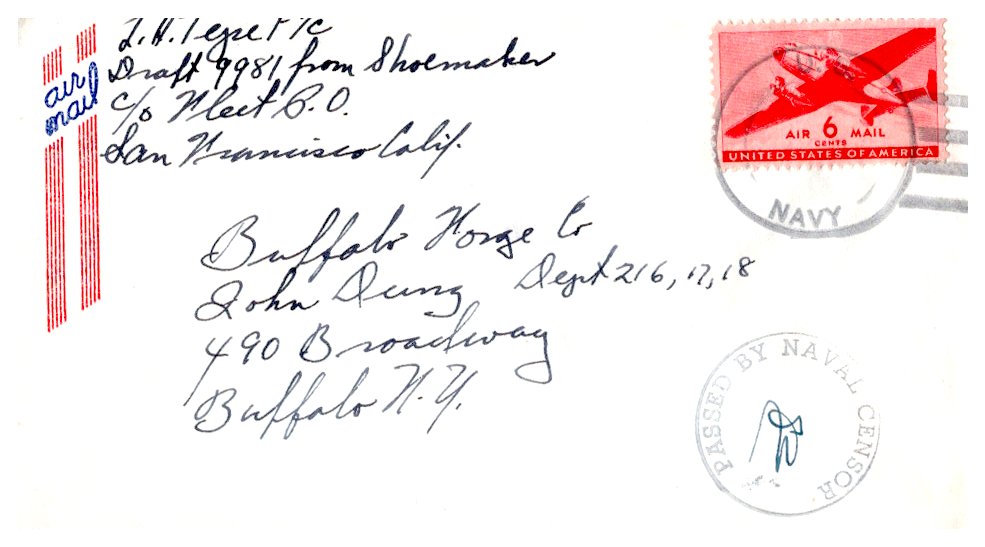 Draft 9981 from Shoemaker
c/o Fleet P.O.
San Francisco Calif.
air
mail
AIR 6 MAIL
CENTS
UNITED STATES OF AMERICA
NAVY
Buffalo Forge Co
John Dung Dept 216, 17, 18
490 Broadway
Buffalo N.Y.
PASSED BY NAVAL CENSOR